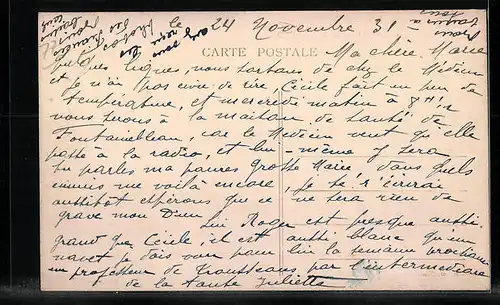 le 24 Novembre 31 —
CARTE POSTALE
Ma chère Marie
quelques lignes, nous sortons de chez le Médecin
et je n'ai pas envie de rire, Cécile fait un peu de
température, et mercredi matin à 8H ½
nous serons à la maison de Santé de
Fontainebleau, car le Médecin veut qu'elle
passe à la radio, et lui-même y sera
tu parles ma pauvre Grosse Marie, dans quels
ennuis me voilà encore, je te r'écrirai
aussitot espérons que ce ne sera rien de
grave mon Dieu, Lui Roger est presque aussi
grand que Cécile, il est aussi blanc qu'un
navet je dois voir pour lui la semaine prochaine
un professeur de Trousseau, par l'intermédiaire
de la tante Juliette